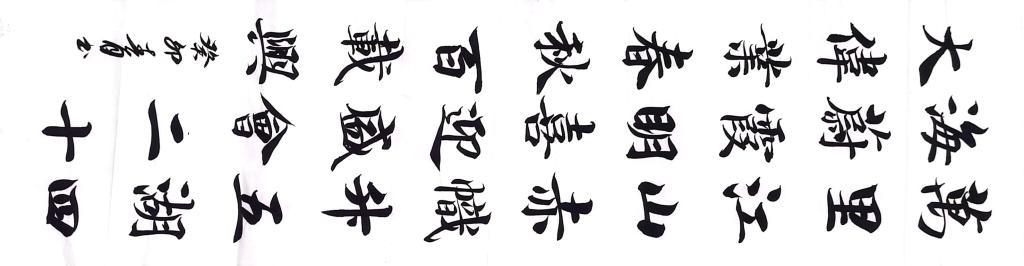 萬里江山赤幟升五湖四
海蔚霞明喜迎盛會二十
大偉業春秋百載興
癸卯